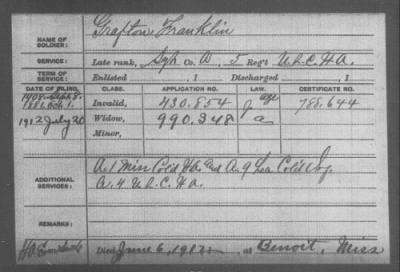 Grafton Franklin
NAME OF SOLDIER:
SERVICE: Late rank, Sgt Co. A, 5 Reg't U.S.C.H.A.
TERM OF SERVICE: Enlisted , 1 Discharged , 1
DATE OF FILING. CLASS. APPLICATION NO. LAW. CERTIFICATE NO.
1908 Sept 8.
1886 Oct 1. Invalid, 430.854 age 788.644
1912 July 20 Widow, 990.348 a
Minor,
ADDITIONAL SERVICES: A. 1 Miss Cold HA. and A. 9 La. Cold
A. 4 U.S.C. HA.
REMARKS:
Died June 6, 1912 at Benoit, Miss